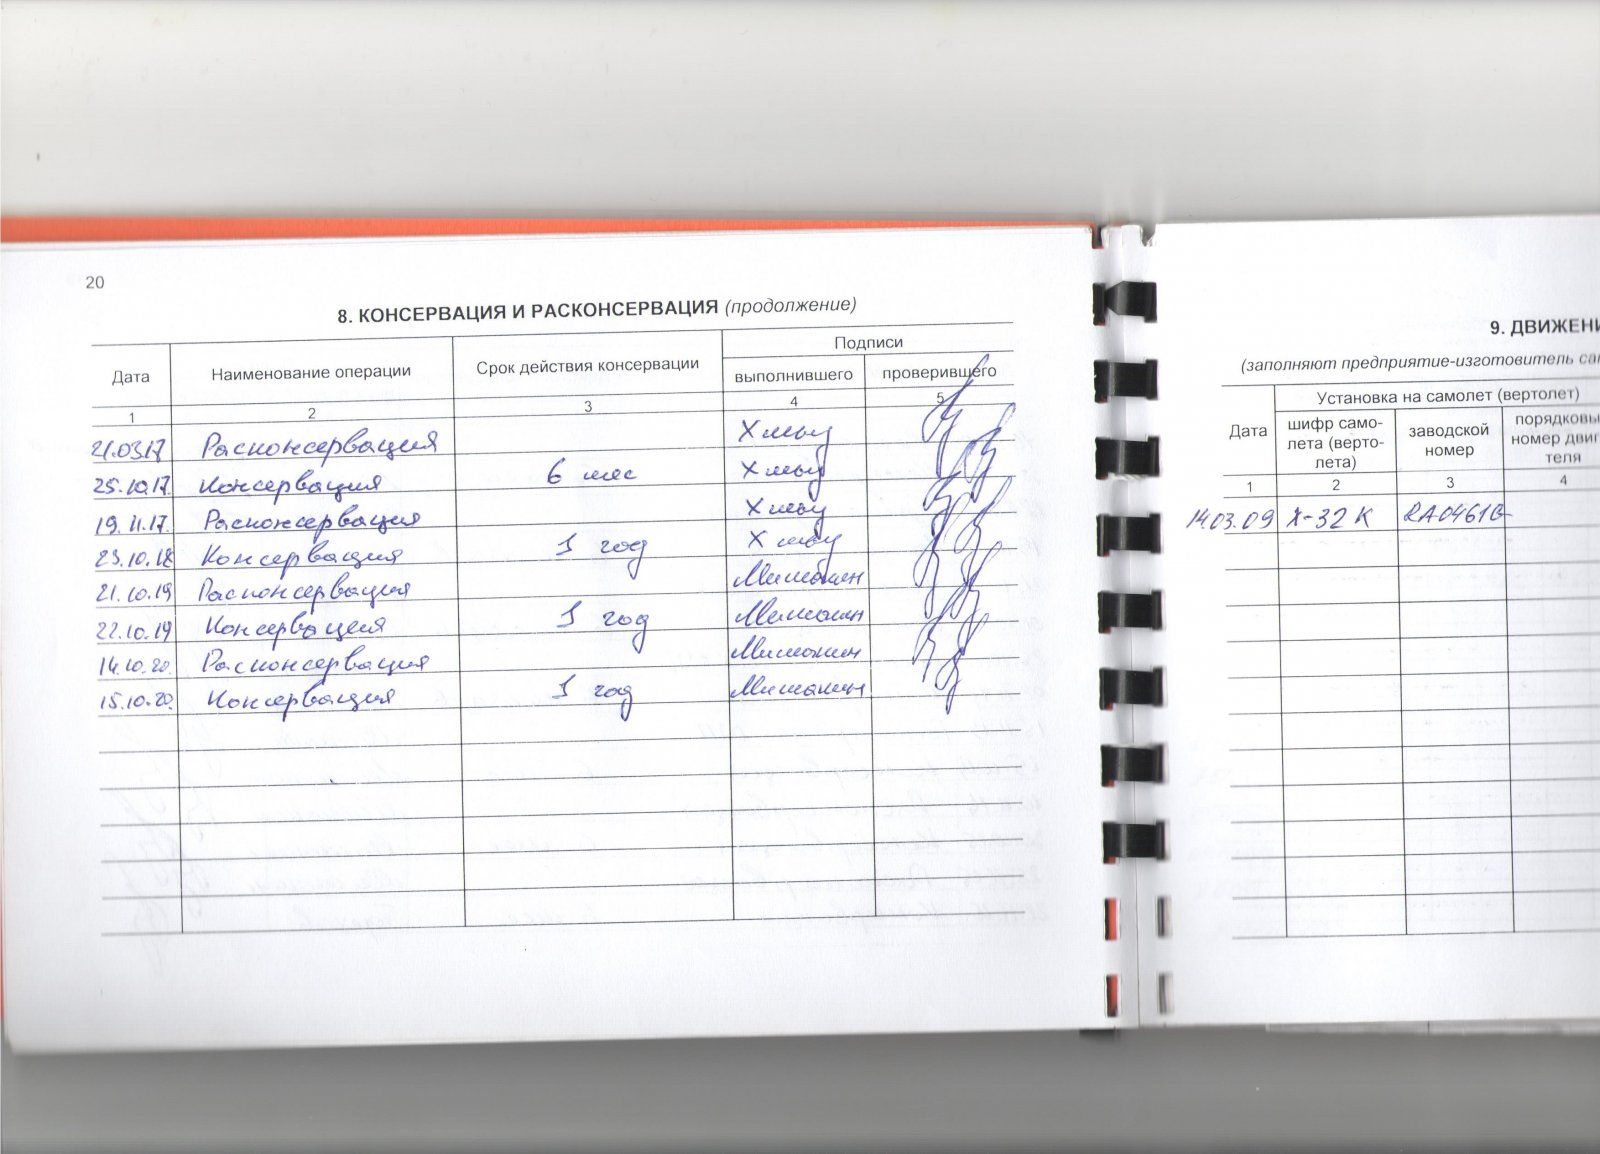 20
8. КОНСЕРВАЦИЯ И РАСКОНСЕРВАЦИЯ (продолжение)
Дата Наименование операции Срок действия консервации Подписи
выполнившего проверившего
1 2 3 4 5
21.03.17 Расконсервация
25.10.17. Консервация 6 мес
19.11.17. Расконсервация
23.10.18 Консервация 1 год
21.10.19 Расконсервация
22.10.19 Консервация 1 год
14.10.20. Расконсервация
15.10.20. Консервация 1 год
9. ДВИЖЕНИ
(заполняют предприятие-изготовитель са
Дата Установка на самолет (вертолет)
шифр само-
лета (верто-
лета)
заводской
номер
порядковы
номер двиг
теля
1 2 3 4
14.03.09 Х-32 К RA0461G